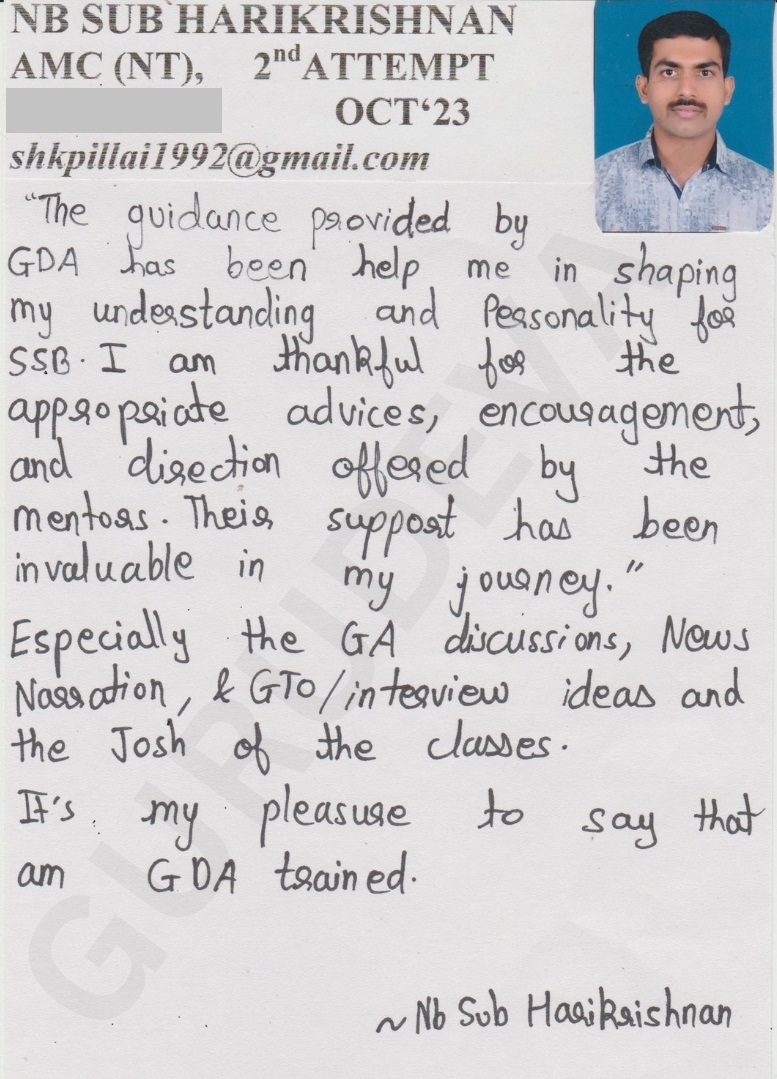 NB SUB HARIKRISHNAN
AMC (NT), 2nd ATTEMPT
OCT‘23
shkpillai1992@gmail.com
“The guidance provided by
GDA has been help me in shaping
my understanding and Personality for
SSB. I am thankful for the
appropriate advices, encouragement,
and direction offered by the
mentors. Their support has been
invaluable in my journey.”
Especially the GA discussions, News
Narration, & GTO/interview ideas and
the Josh of the classes.
It's my pleasure to say that
am GDA trained.
~ Nb Sub Harikrishnan
GURUDEVA